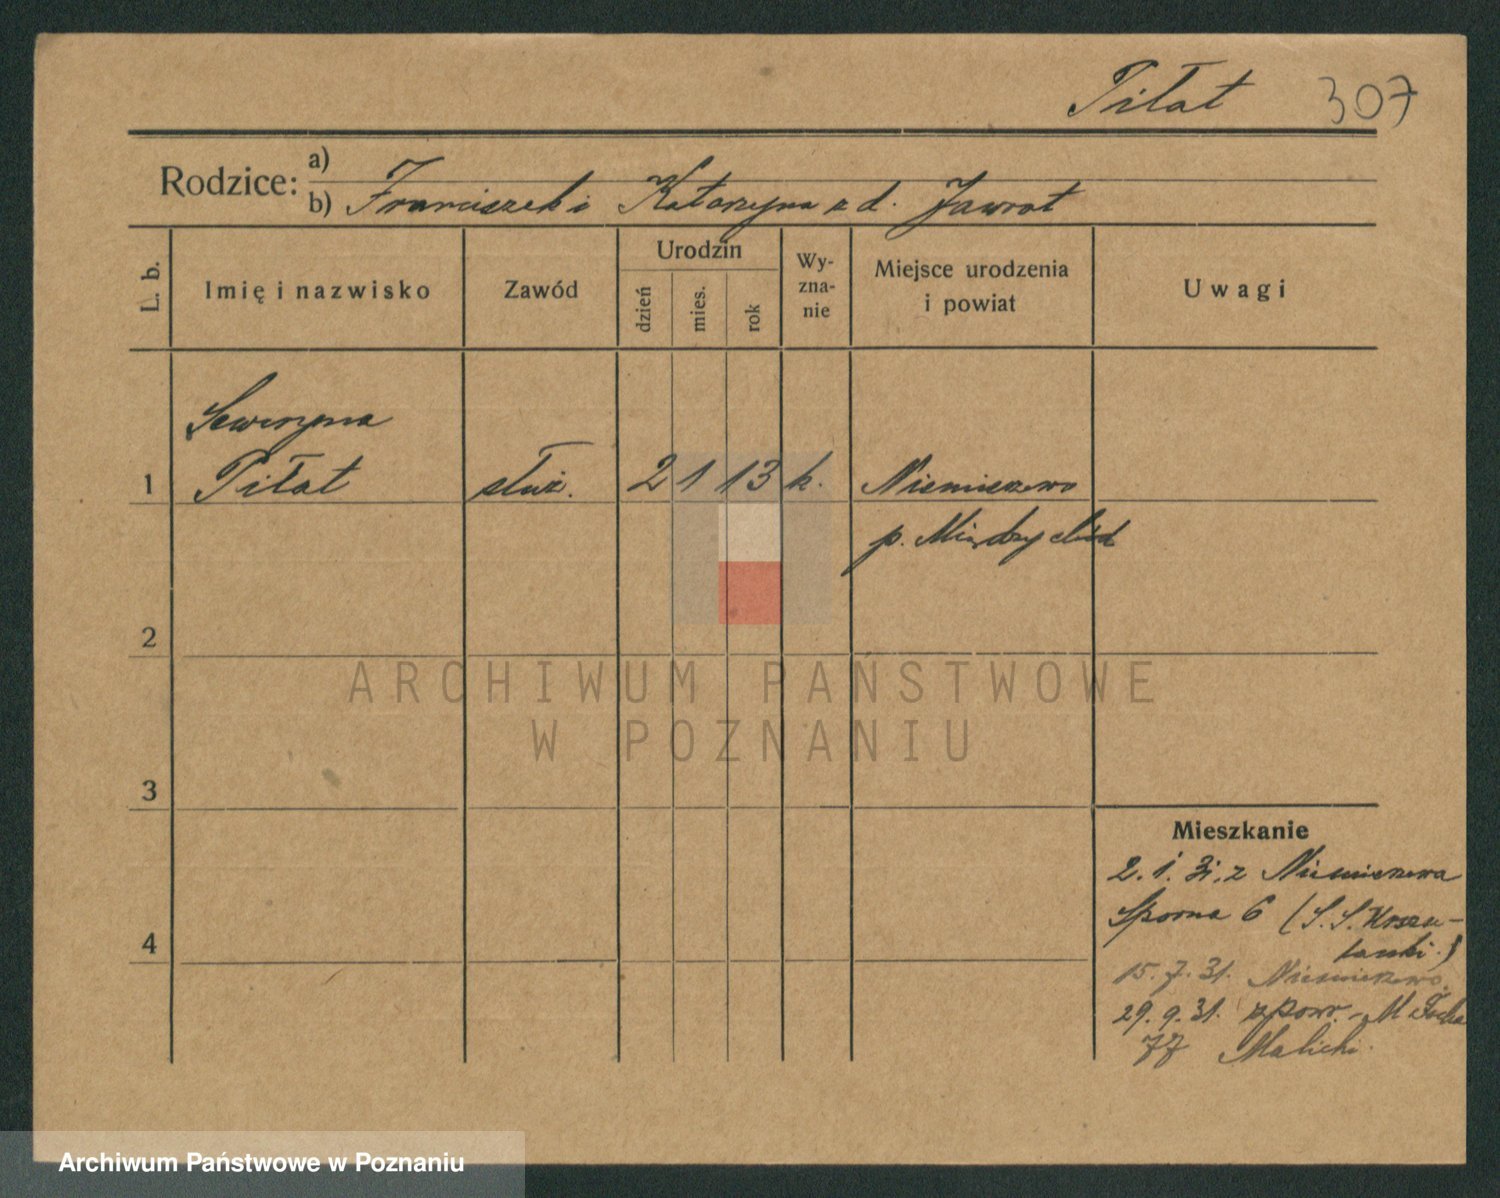 Piłat 307
Rodzice:
a)
b) Franciszek i Katarzyna z d. Jawrot
L. b.
Imię i nazwisko
Zawód
Urodzin
dzień
mies.
rok
Wy-
zna-
nie
Miejsce urodzenia
i powiat
Uwagi
Seweryna
1 Piłat służ. 2 1 13 k. Niemierzewo
p. Międzychód
2
3
4
ARCHIWUM PAŃSTWOWE
W POZNANIU
Mieszkanie
2. 1. 31. z Niemierzewa
Sporna 6 (S. S. Urszu-
lanki.)
15. 7. 31. Niemierzewo.
29. 9. 31. z pow. - M. Focha
77 Malicki.
Archiwum Państwowe w Poznaniu